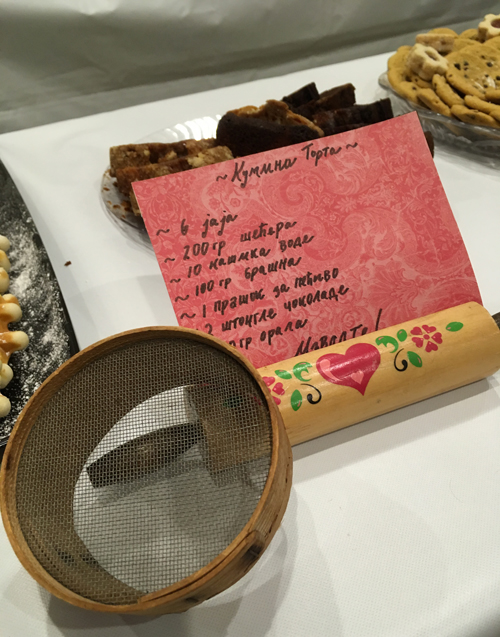 ~ Кумина Торта ~
~ 6 јаја
~ 200 гр шећера
~ 10 кашика воде
~ 100 гр брашна
~ 1 прашак за пециво
2 штангле чоколаде
0 гр ораха